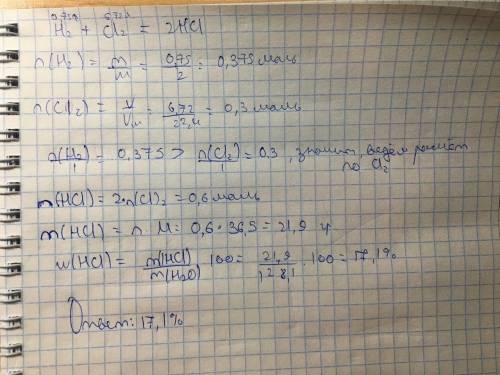 0,75г 6,72л
H₂ + Cl₂ = 2HCl
n(H₂) = m/M = 0,75/2 = 0,375 моль
n(Cl₂) = V/Vм = 6,72/22,4 = 0,3 моль
n(H₂)/1 = 0,375 > n(Cl₂)/1 = 0,3, значит, ведём расчёт
по Cl₂
n(HCl) = 2·n(Cl)₂ = 0,6 моль
m(HCl) = n · M = 0,6 · 36,5 = 21,9 г
w(HCl) = m(HCl)/m(H₂O) · 100 = 21,9/128,1 · 100 = 17,1%
Ответ: 17,1%